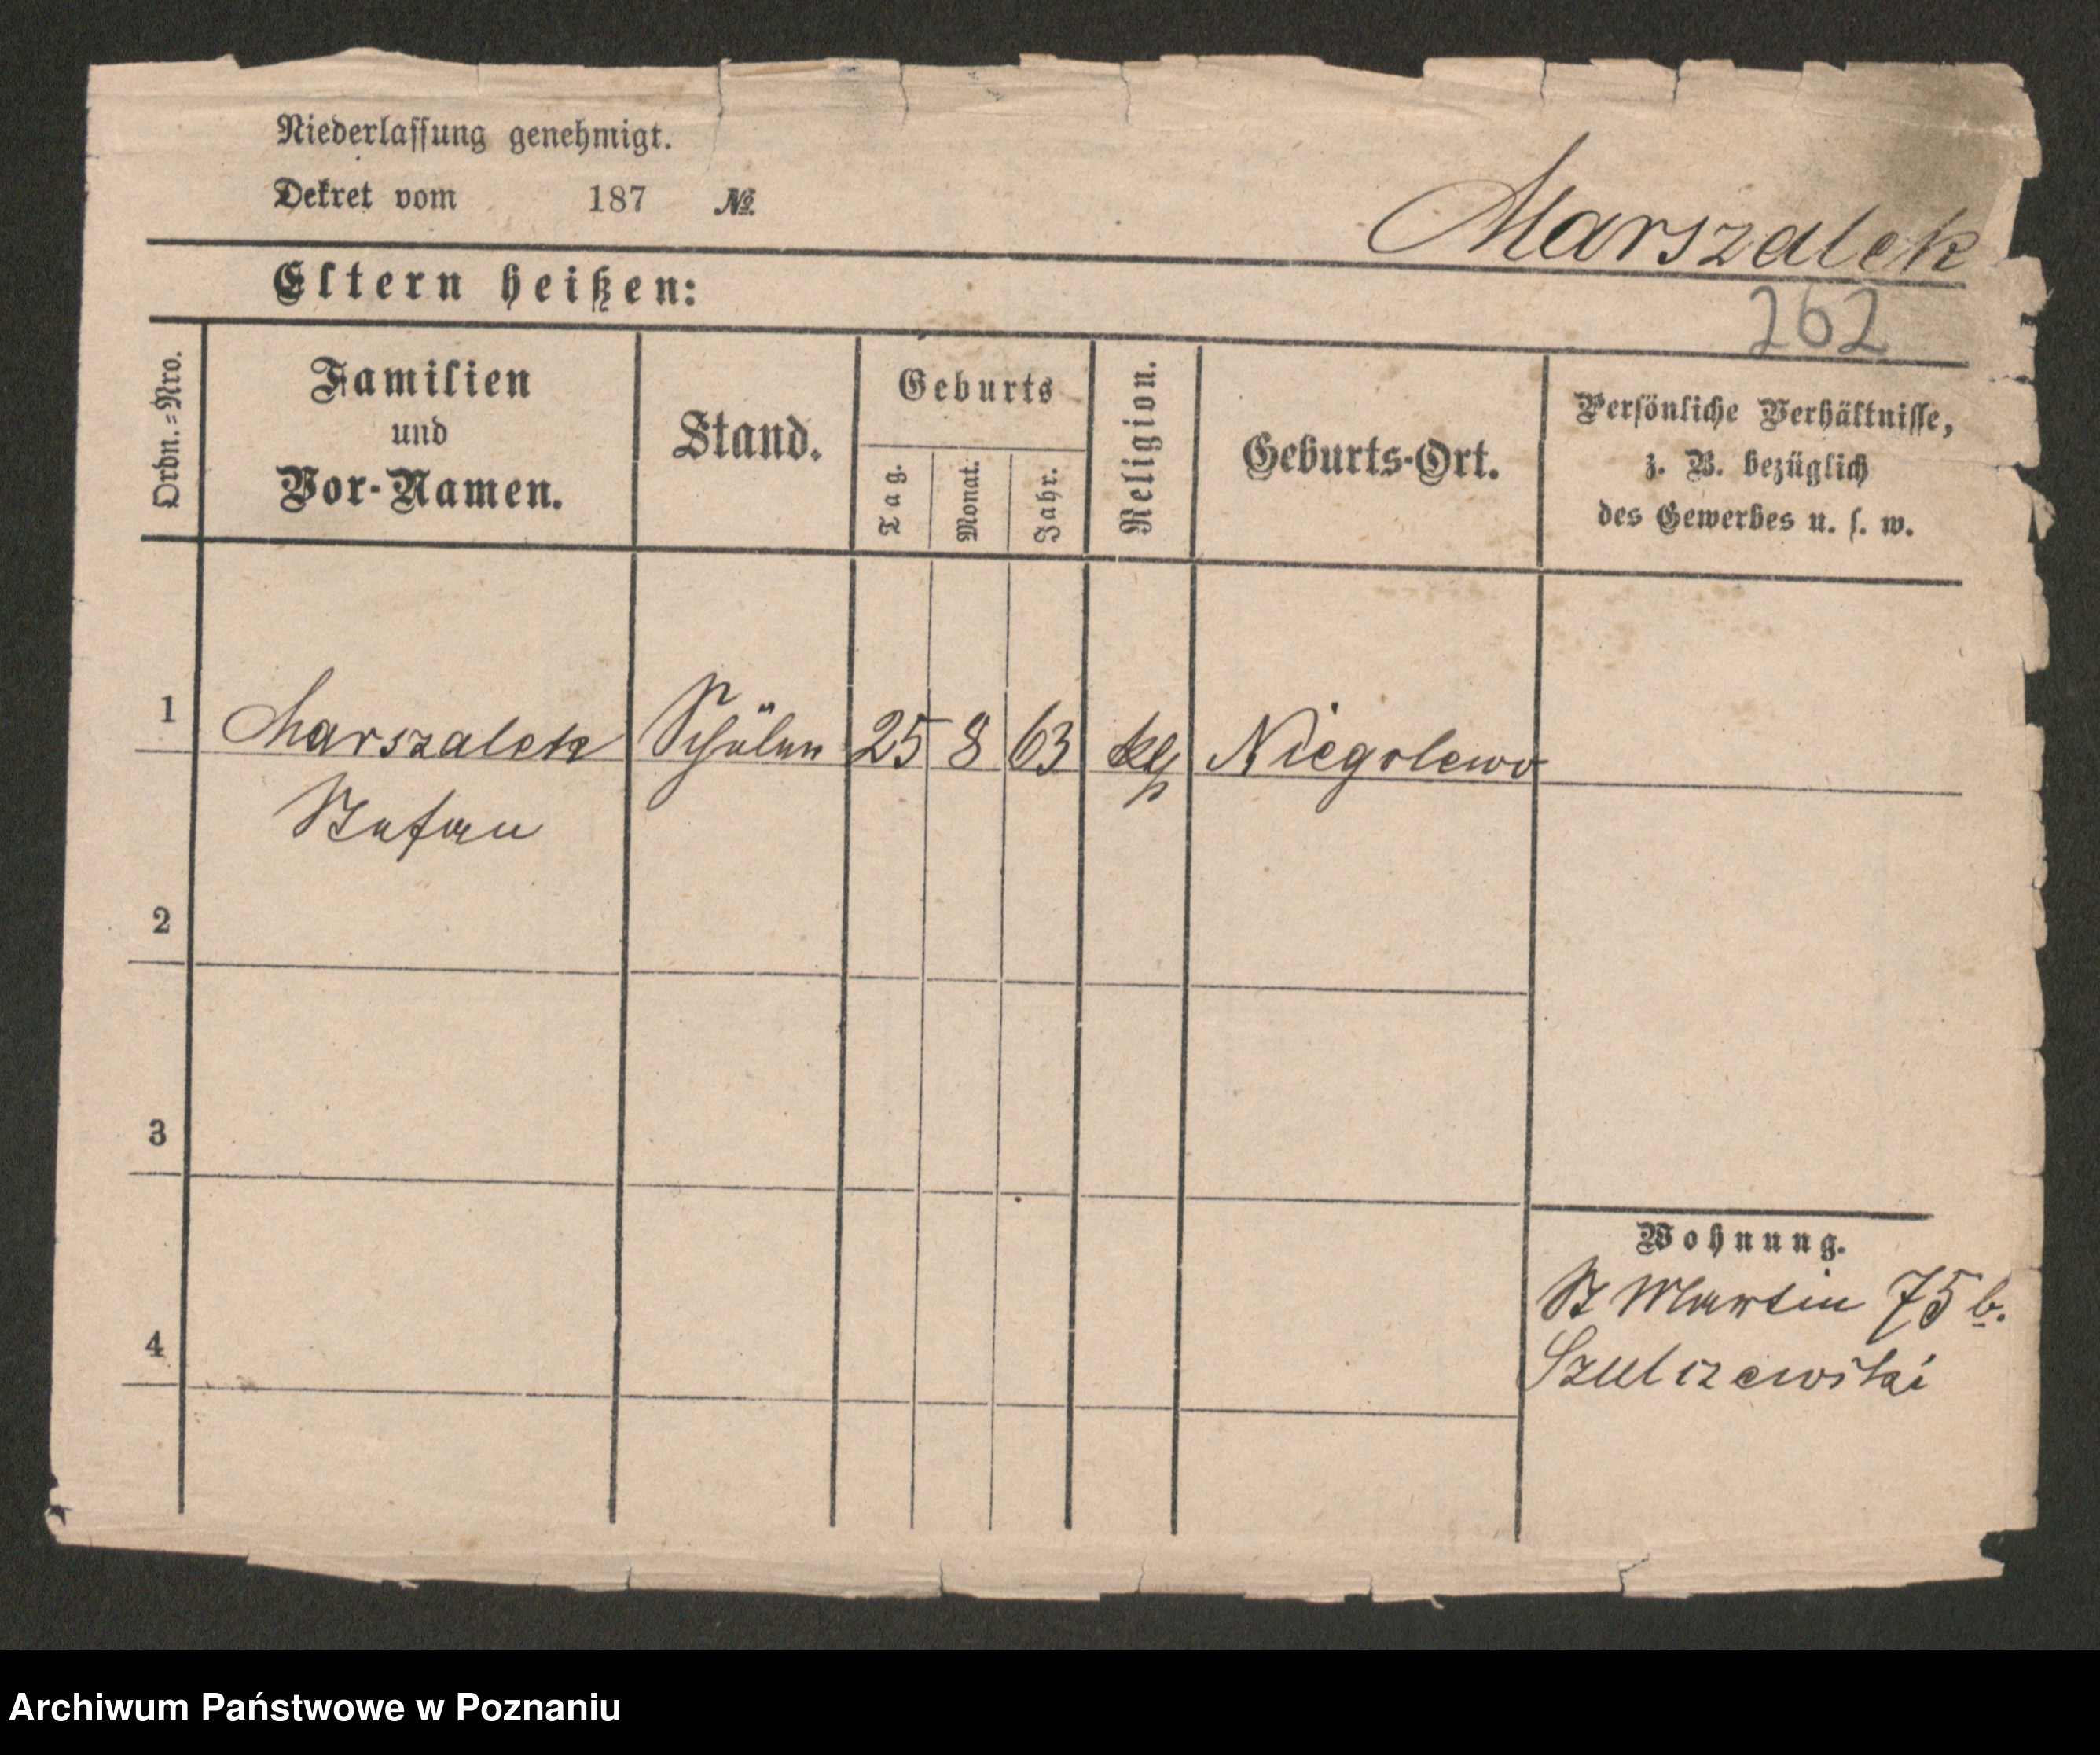 Niederlassung genehmigt.
Dekret vom 187 №
Marszalek
Eltern heißen:
262
Ordn.=Nro.
Familien
und
Vor-Namen.
Stand.
Geburts
Tag.
Monat.
Jahr.
Religion.
Geburts-Ort.
Persönliche Verhältnisse,
z. B. bezüglich
des Gewerbes u. s. w.
1 Marszalek Schüler 25 8 63 Niegolewo
Stefan
2
3
4
Wohnung.
St Martin 75 b.
Szulczewski
Archiwum Państwowe w Poznaniu